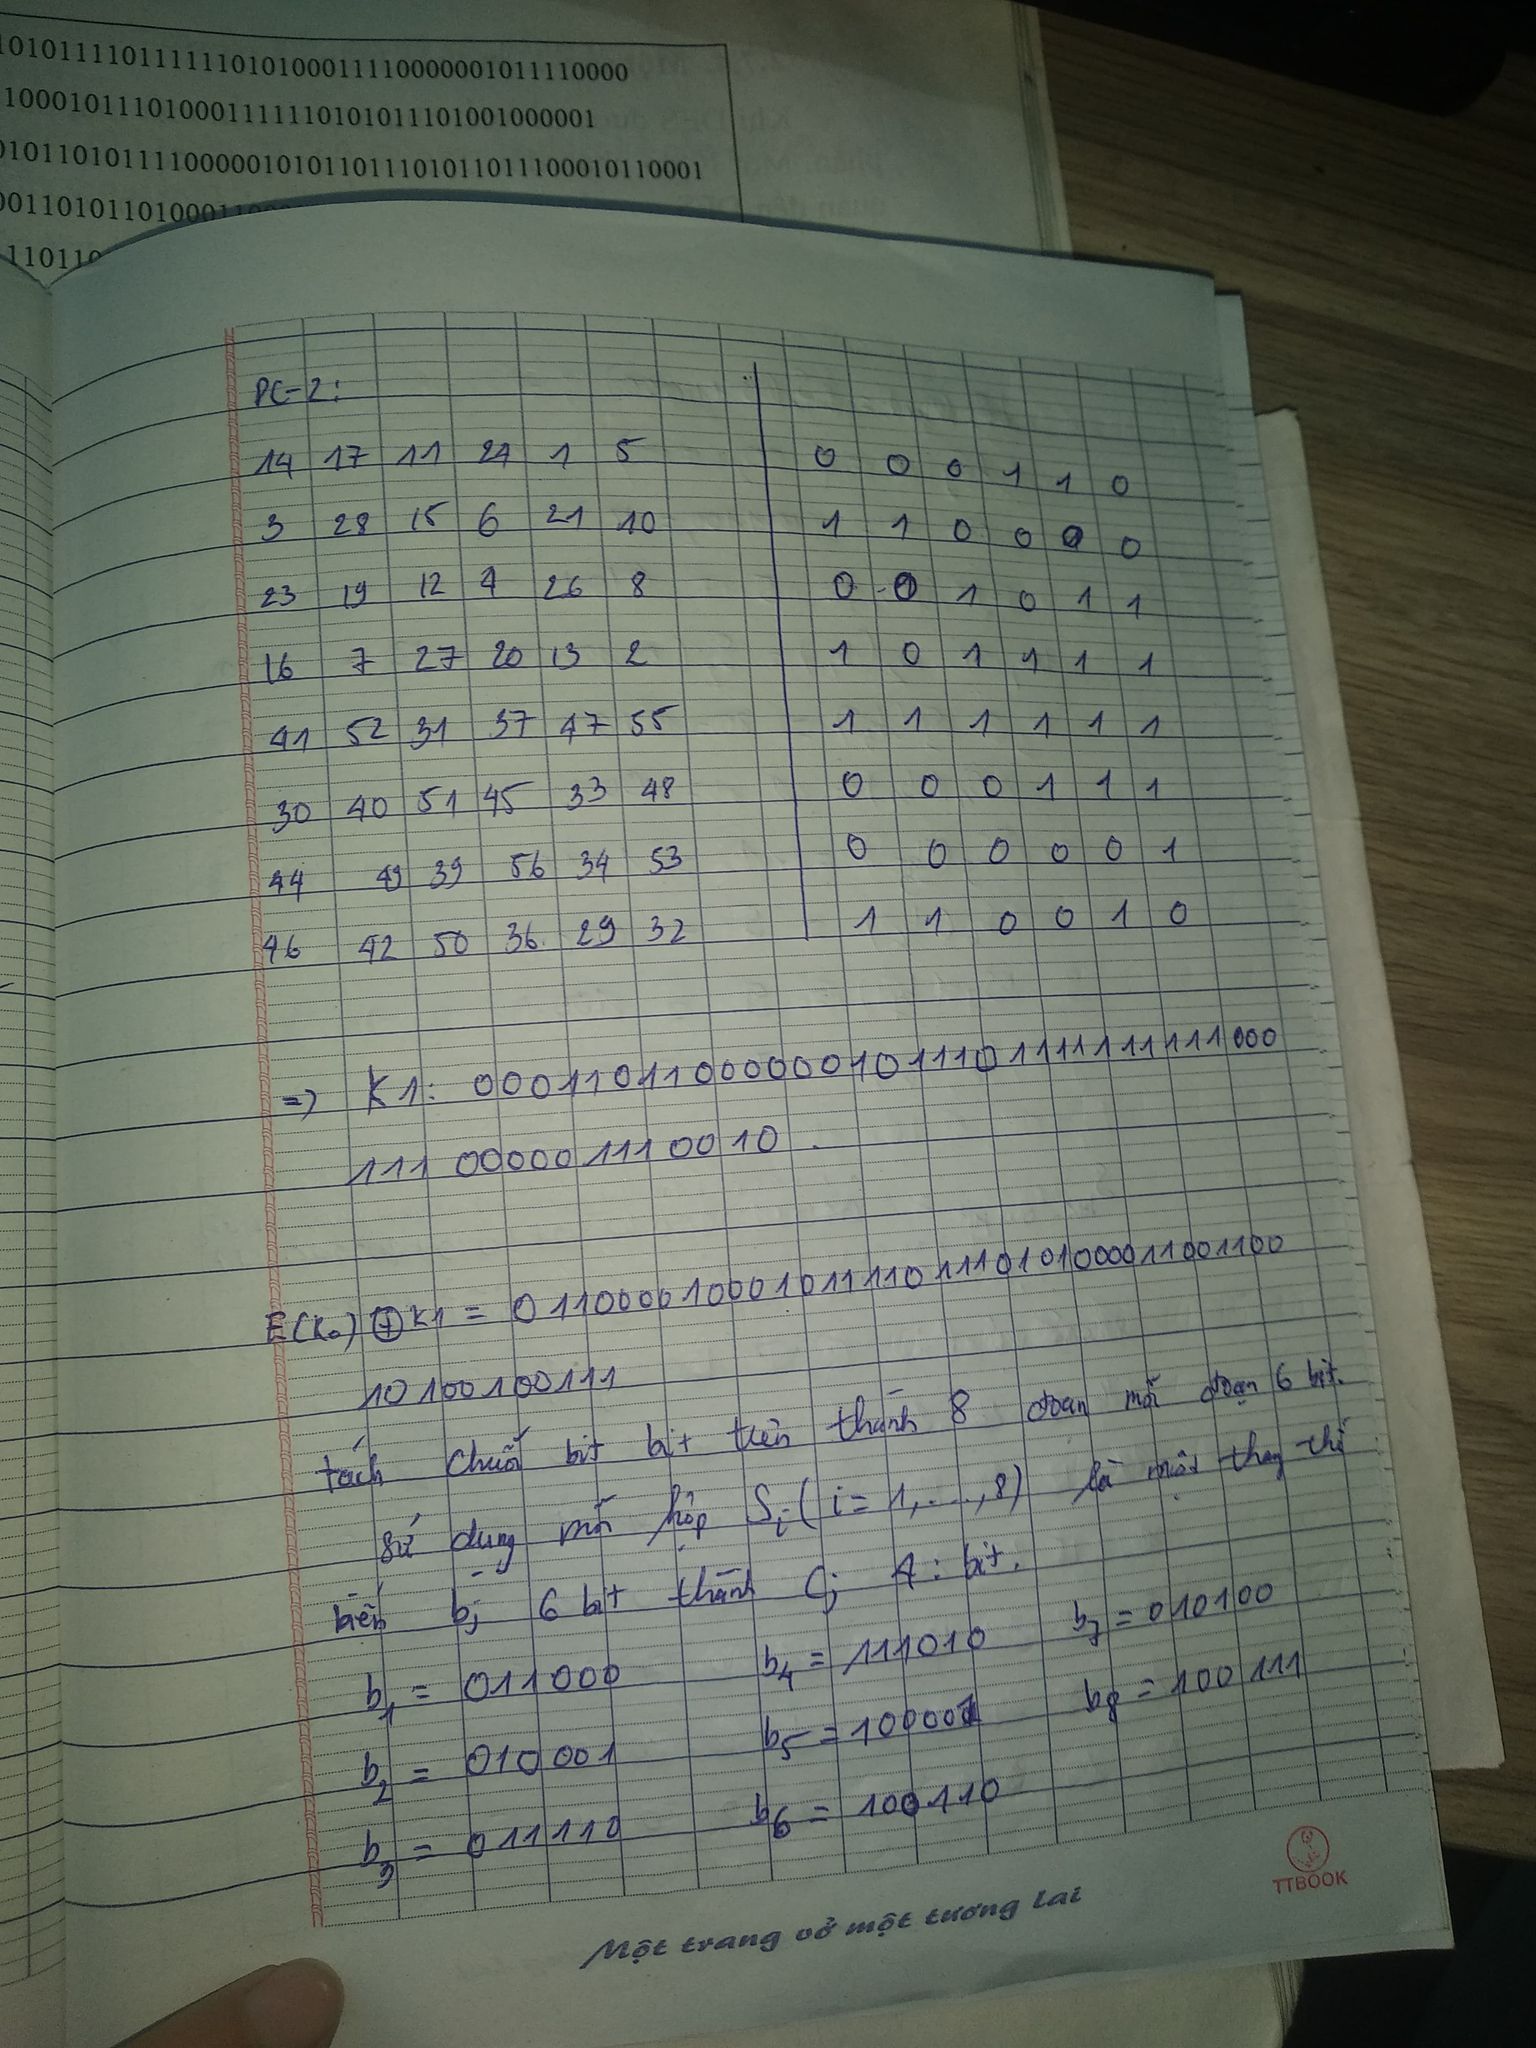 10101111011111101010001111000000101111 0000
100010111010001111110101011101001000001
01011010111100000101011011101011011100010110001
00110101101000110
11011
PC-2:
14 17 11 24 1 5 0 0 0 1 1 0
3 28 15 6 21 10 1 1 0 0 0 0
23 19 12 4 26 8 0 0 1 0 1 1
16 7 27 20 13 2 1 0 1 1 1 1
41 52 31 37 47 55 1 1 1 1 1 1
30 40 51 45 33 48 0 0 0 1 1 1
44 49 39 56 34 53 0 0 0 0 0 1
46 42 50 36 29 32 1 1 0 0 1 0
=> K1: 000110110000001011101111111111000
111000001110010
E(R0) ⊕ K1 = 011000010001011110111010100001100110 0
10100100111
tách chuỗi bit bit trên thành 8 đoạn mỗi đoạn 6 bit.
sử dụng mỗi hộp Si (i = 1, ...., 8) là một thay thế
biến bj 6 bit thành Cj 4 bit.
b1 = 011000 b4 = 111010 b7 = 010100
b2 = 010001 b5 = 100001 b8 = 100111
b3 = 011110 b6 = 100110
TTBOOK
Một trang vở một tương lai